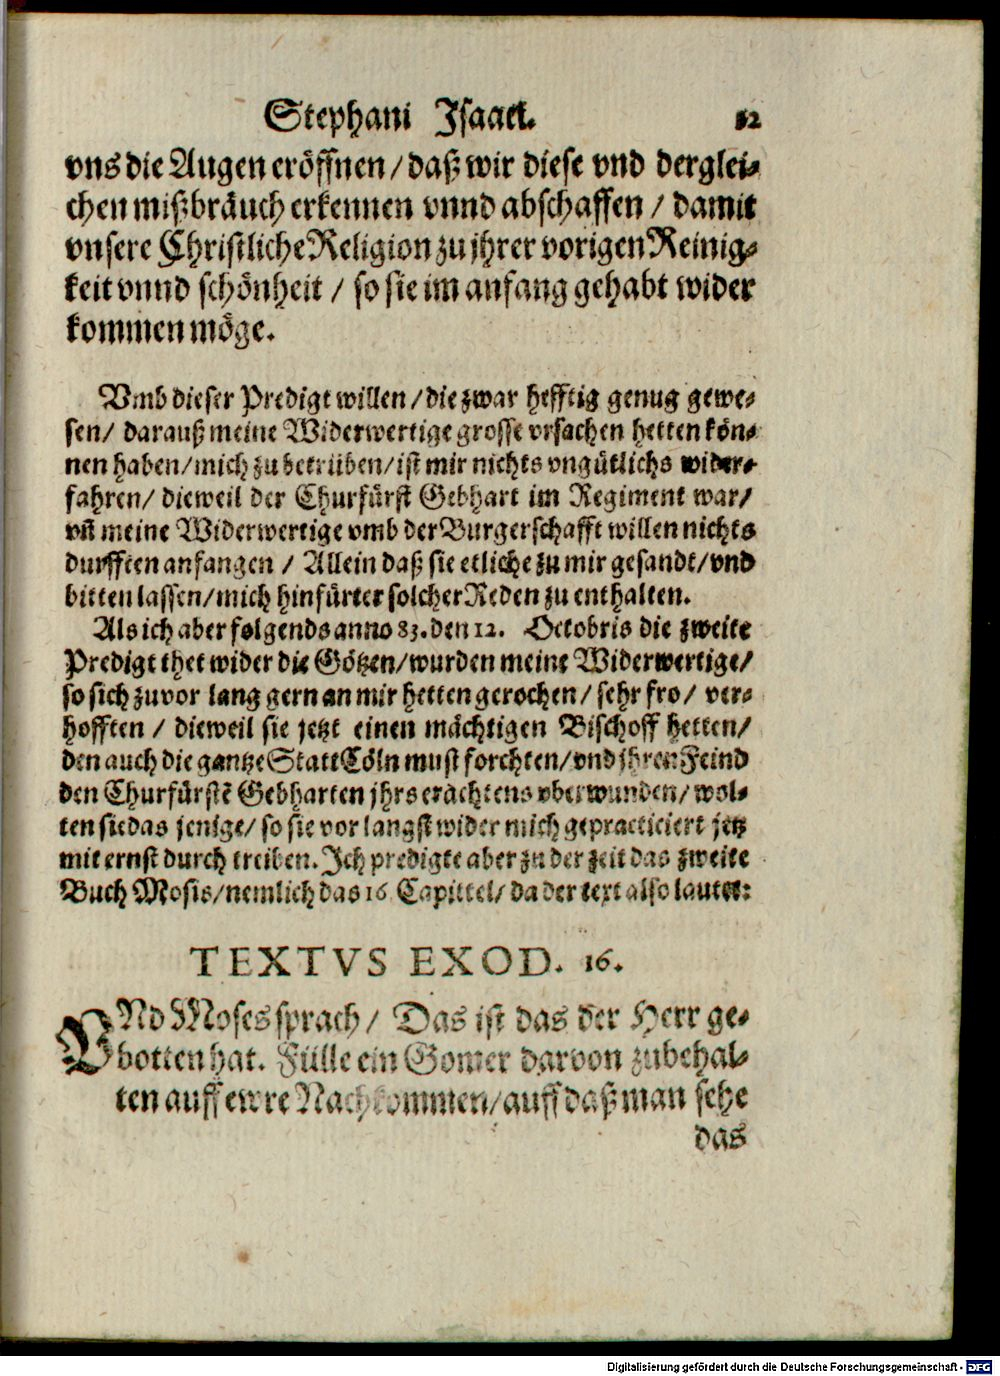 Stephani Isaaci. 12
vns die Augen eröffnen / daß wir diese vnd derglei-
chen mißbräuch erkennen vnnd abschaffen / damit
vnsere Christliche Religion zu jhrer vorigen Reinig-
keit vnnd schönheit / so sie im anfang gehabt wider
kommen möge.
Vmb dieser Predigt willen / die zwar hefftig genug gewe-
sen / darauß meine Widerwertige grosse vrsachen hetten kön-
nen haben / mich zu betrüben / ist mir nichts vngütlichs wider-
fahren / dieweil der Churfürst Gebhart im Regiment war /
vñ meine Widerwertige vmb der Burgerschafft willen nichts
durfften anfangen / Allein daß sie etliche zu mir gesandt / vnd
bitten lassen / mich hinfürter solcher Reden zu enthalten.
Als ich aber folgends anno 83. den 12. Octobris die zweite
Predigt thet wider die Götzen / wurden meine Widerwertige /
so sich zuvor lang gern an mir hetten gerochen / sehr fro / ver-
hofften / dieweil sie jetzt einen mächtigen Bischoff hetten /
den auch die gantze Statt Cöln must forchten / vnd jhren Feind
den Churfürstē Gebharten jhrs erachtens vberwunden / wol-
ten sie das jenige / so sie vor langst wider mich gepracticiert jetz
mit ernst durch treiben. Ich predigte aber zu der zeit das zweite
Buch Mosis / nemlich das 16 Capittel / da der text also lautet:
TEXTVS EXOD. 16.
VNd Moses sprach / Das ist das der Herr ge-
botten hat. Fülle ein Gomer darvon zubehal-
ten auff ewre Nachkommen / auff daß man sehe
das
Digitalisierung gefördert durch die Deutsche Forschungsgemeinschaft - DFG